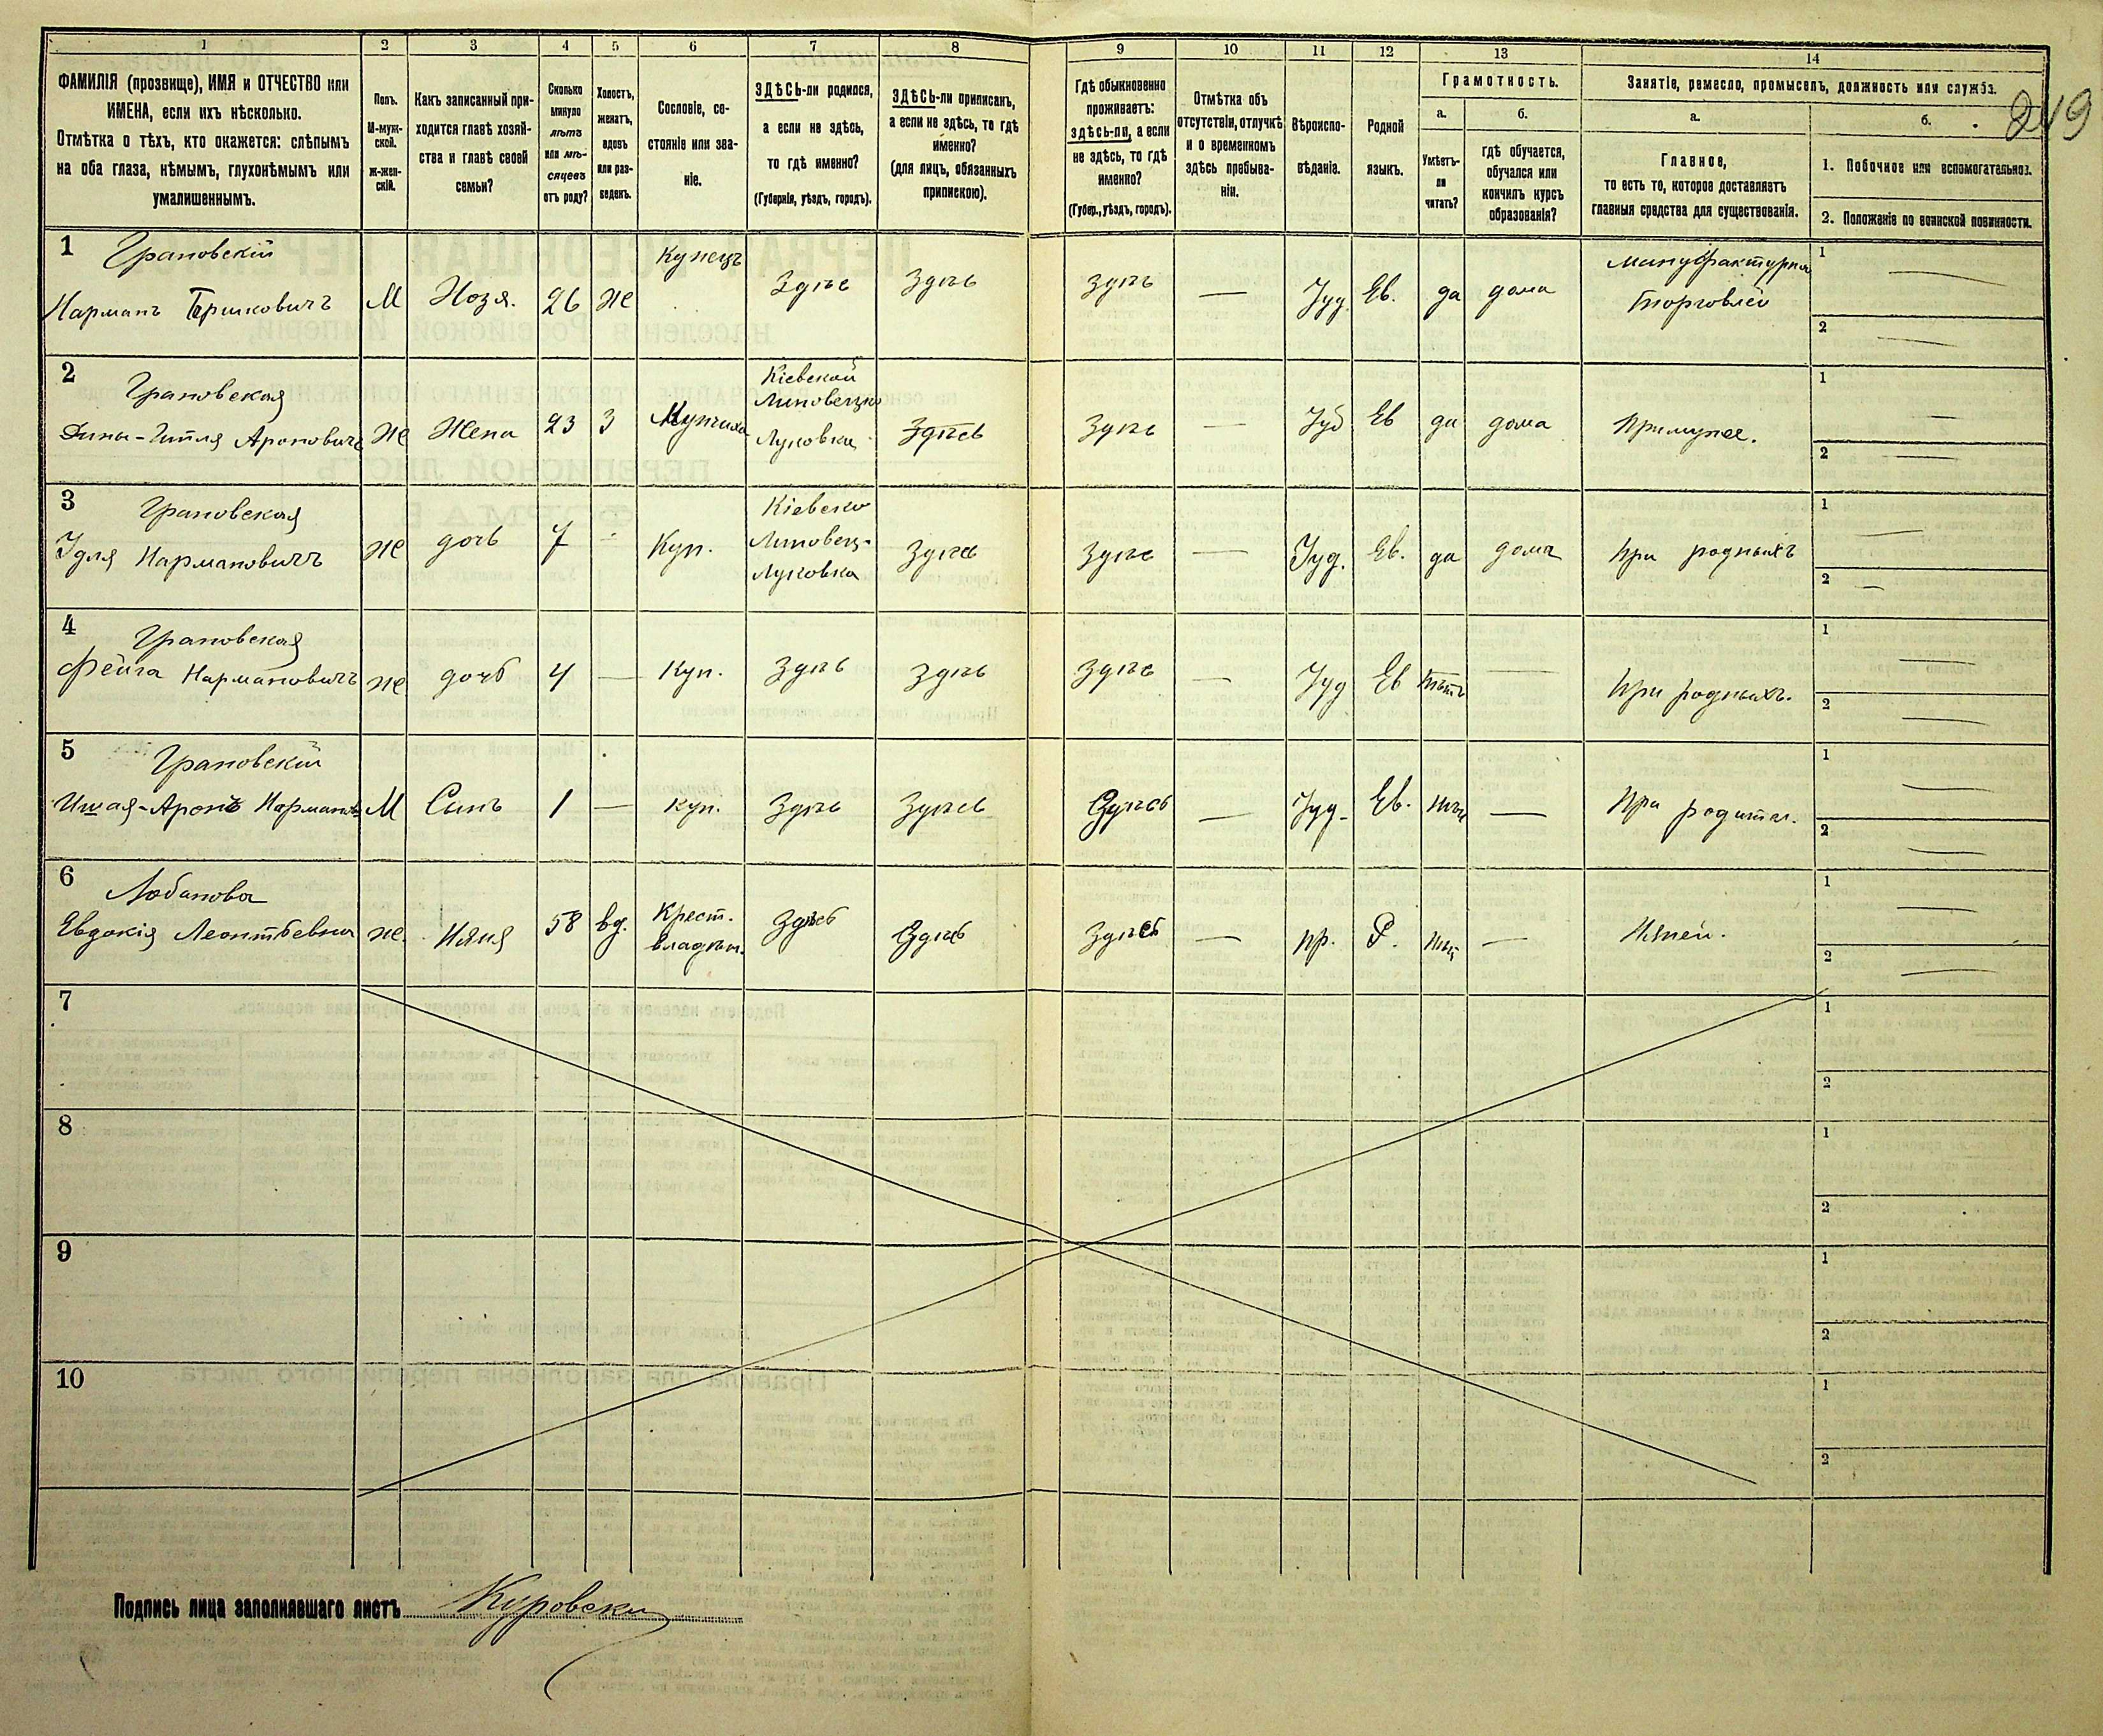 1 2 3 4 5 6 7 8 9 10 11 12 13 14
ФАМИЛІЯ (прозвище), ИМЯ и ОТЧЕСТВО или
ИМЕНА, если ихъ нѣсколько.
Отмѣтка о тѣхъ, кто окажется: слѣпымъ
на оба глаза, нѣмымъ, глухонѣмымъ или
умалишеннымъ.
Полъ.
М-муж-
ской.
ж-жен-
скій.
Какъ записанный при-
ходится главѣ хозяй-
ства и главѣ своей
семьи?
Сколько
минуло
лѣтъ
или мѣ-
сяцевъ
отъ роду?
Холостъ,
женатъ,
вдовъ
или раз-
веденъ.
Сословіе, со-
стояніе или зва-
ніе.
ЗДѢСЬ-ли родился,
а если не здѣсь,
то гдѣ именно?
(Губернія, уѣздъ, городъ).
ЗДѢСЬ-ли приписанъ,
а если не здѣсь, то гдѣ
именно?
(для лицъ, обязанныхъ
припискою).
Гдѣ обыкновенно
проживаетъ:
здѣсь-ли, а если
не здѣсь, то гдѣ
именно?
(Губер., уѣздъ, городъ).
Отмѣтка объ
отсутствіи, отлучкѣ
и о временномъ
здѣсь пребыва-
ніи.
Вѣроиспо-
вѣданіе.
Родной
языкъ.
Грамотность.
а.
Умѣетъ-
ли
читать?
б.
гдѣ обучается,
обучался или
кончилъ курсъ
образованія?
Занятіе, ремесло, промыселъ, должность или служба.
а.
Главное,
то есть то, которое доставляетъ
главныя средства для существованія.
б.
1. Побочное или вспомогательное.
2. Положеніе по воинской повинности.
249
1 Грановскій Купецъ Мануфактурна 1 —
Нарманъ Берковичъ М Хозя. 26 же Здѣс Здѣсь здѣсь — Іуд. Ев. да дома торговлей 2 —
2 Грановская Кіевской 1 —
Липовецко
Дина-Гитля Ароновичъ же Жена 23 з Купчиха Луковка Здѣсь Здѣсь — Іуд Ев да дома При мужѣ. 2 —
3 Грановская Кіевско 1 —
Идля Нармановичъ же дочь 7 - Куп. Липовец- Здѣсь Здѣсь — Іуд. Ев. да дома При родныхъ 2 —
Луковка
4 Грановская 1 —
Фейга Нармановичъ же дочь 4 — Куп. Здѣсь Здѣсь Здѣсь — Іуд Ев нѣтъ — При родныхъ. 2 —
5 Грановскій 1 —
Ишая-Аронъ Нарманов М Сынъ 1 — куп. Здѣсь Здѣсь Здѣсь — Іуд- Ев. нѣт — При родител. 2 —
6 Лобанова Крест. 1 —
Евдокія Леонтьевна же. Няня 58 вд. владѣл. Здѣсь Здѣсь Здѣсь — пр. Р. нѣт — Няней. 2 —
7 1
2
8 1
2
9 1
2
10 1
2
Подпись лица заполнявшаго листъ Куровски